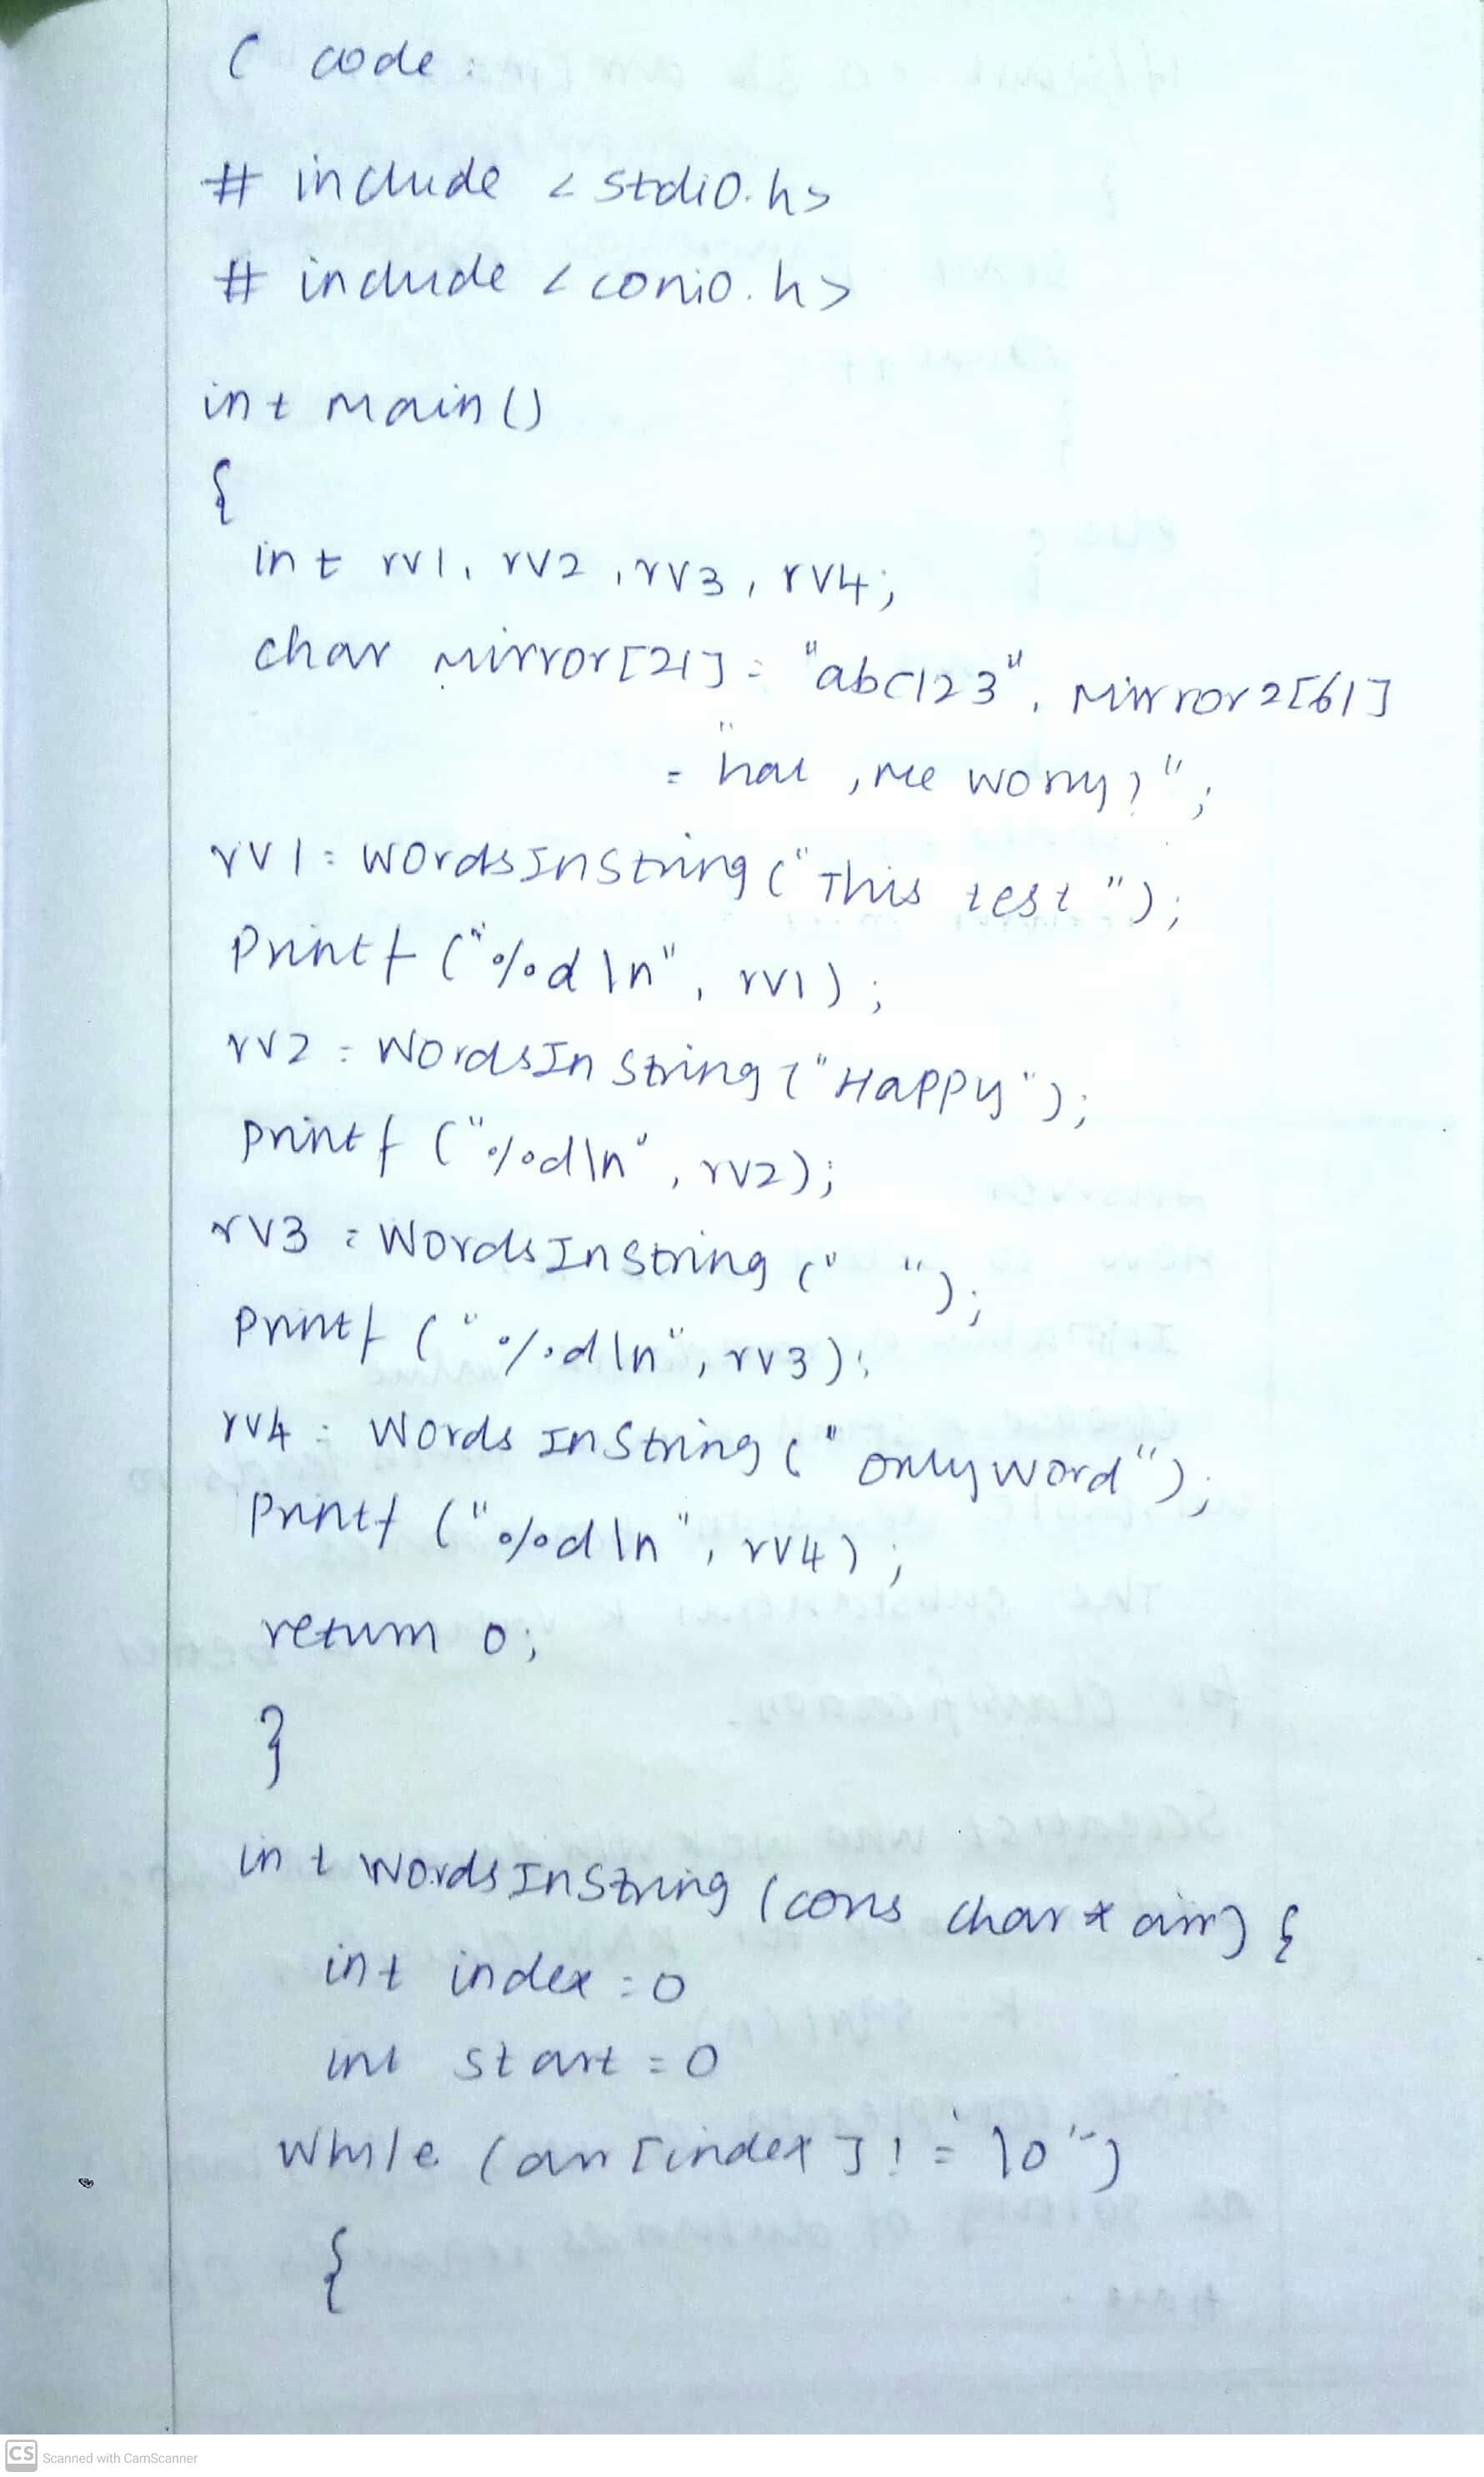 C code:
# include <stdio.h>
# include <conio.h>
int main()
{
int rv1, rv2, rv3, rv4;
char mirror[21] = "abc123", mirror2[61]
= "hat, me worry?";
rv1 = WordsInString("This test");
Printf ("%d\n", rv1);
rv2 = WordsIn String ("Happy");
printf ("%d\n", rv2);
rv3 = WordsInString (" ");
Printf ("%d\n", rv3);
rv4 = Words InString ("onlyword");
Printf ("%d\n", rv4);
return 0;
}
int WordsInString (cons char* arr) {
int index = 0
int start = 0
While (arr[index] != '\0")
{
CS Scanned with CamScanner